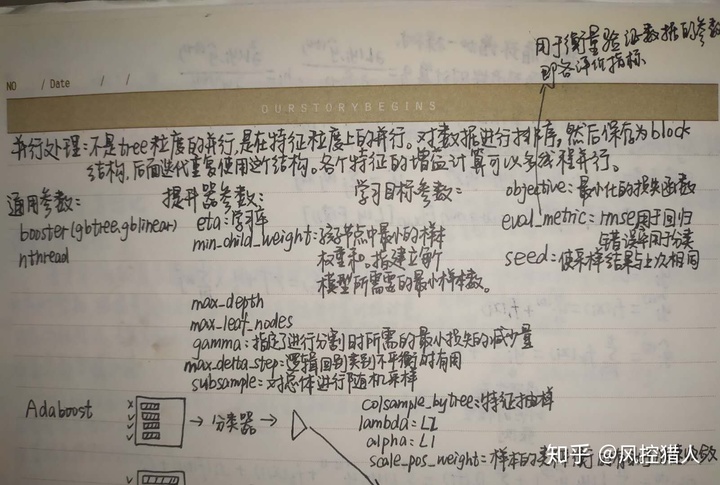 用于衡量验证数据的参数
即各评价指标
NO / Date / /
OURSTORYBEGINS
并行处理:不是tree粒度的并行,是在特征粒度上的并行。对数据进行排序,然后保存为block
结构,后面迭代重复使用这个结构。各个特征的增益计算可以多线程并行。
通用参数:
booster(gbtree,gblinear)
nthread
提升器参数:
eta:学习率
min_child_weight:孩子节点中最小的样本
权重和。指建立每个
模型所需要的最小样本数。
max_depth
max_leaf_nodes
gamma:指定了进行分割时所需的最小损失的减少量
max_delta_step:逻辑回归类别不平衡时有用
subsample:对总体进行随机采样
colsample_bytree:特征抽样
lambda:L2
alpha:L1
scale_pos_weight:样本的类
学习目标参数:
objective:最小化的损失函数
eval_metric:rmse用于回归
错误率用于分类
seed:使采样结果与上次相同
Adaboost
分类器
知乎 @风控猎人